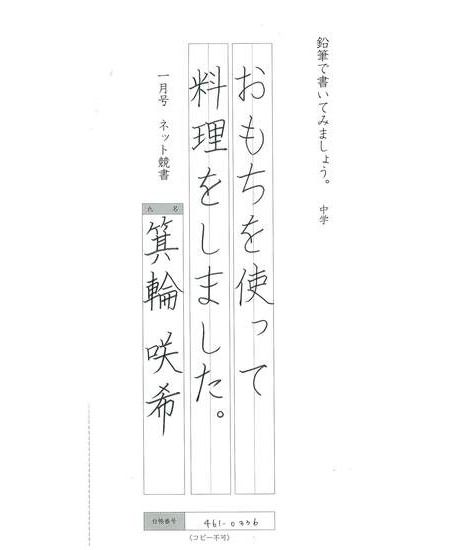 鉛筆で書いてみましょう。 中学
おもちを使って
料理をしました。
一月号 ネット競書
氏名
箕輪 咲希
台帳番号 461-0336
(コピー不可)